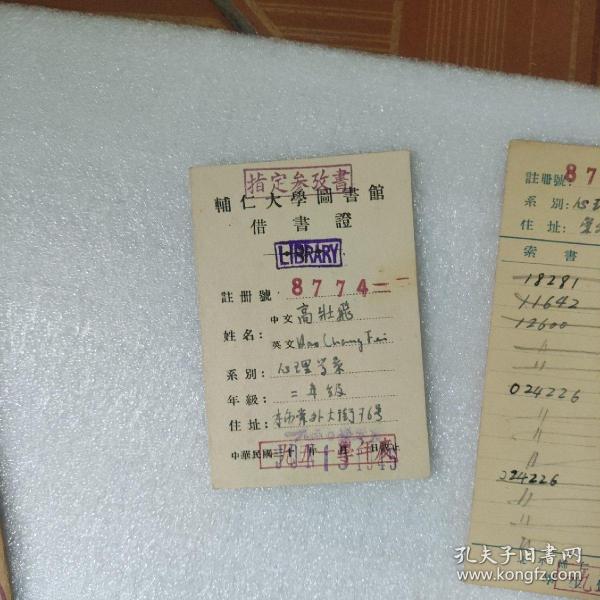 指定參攷書
輔仁大學圖書館
借書證
LIBRARY
註冊號 8774
姓名: 中文 高壯飛
英文 Kao Chuang Fei
系別: 心理學系
年級: 二年級
住址: 大街76号
中華民國三十年 月 日截止
註冊號: 87
系別: 心理
住址:
索書
18281
11642
12600
〃
024226
〃
〃
〃
224226
〃
〃
〃
孔夫子旧书网
kongfz.com